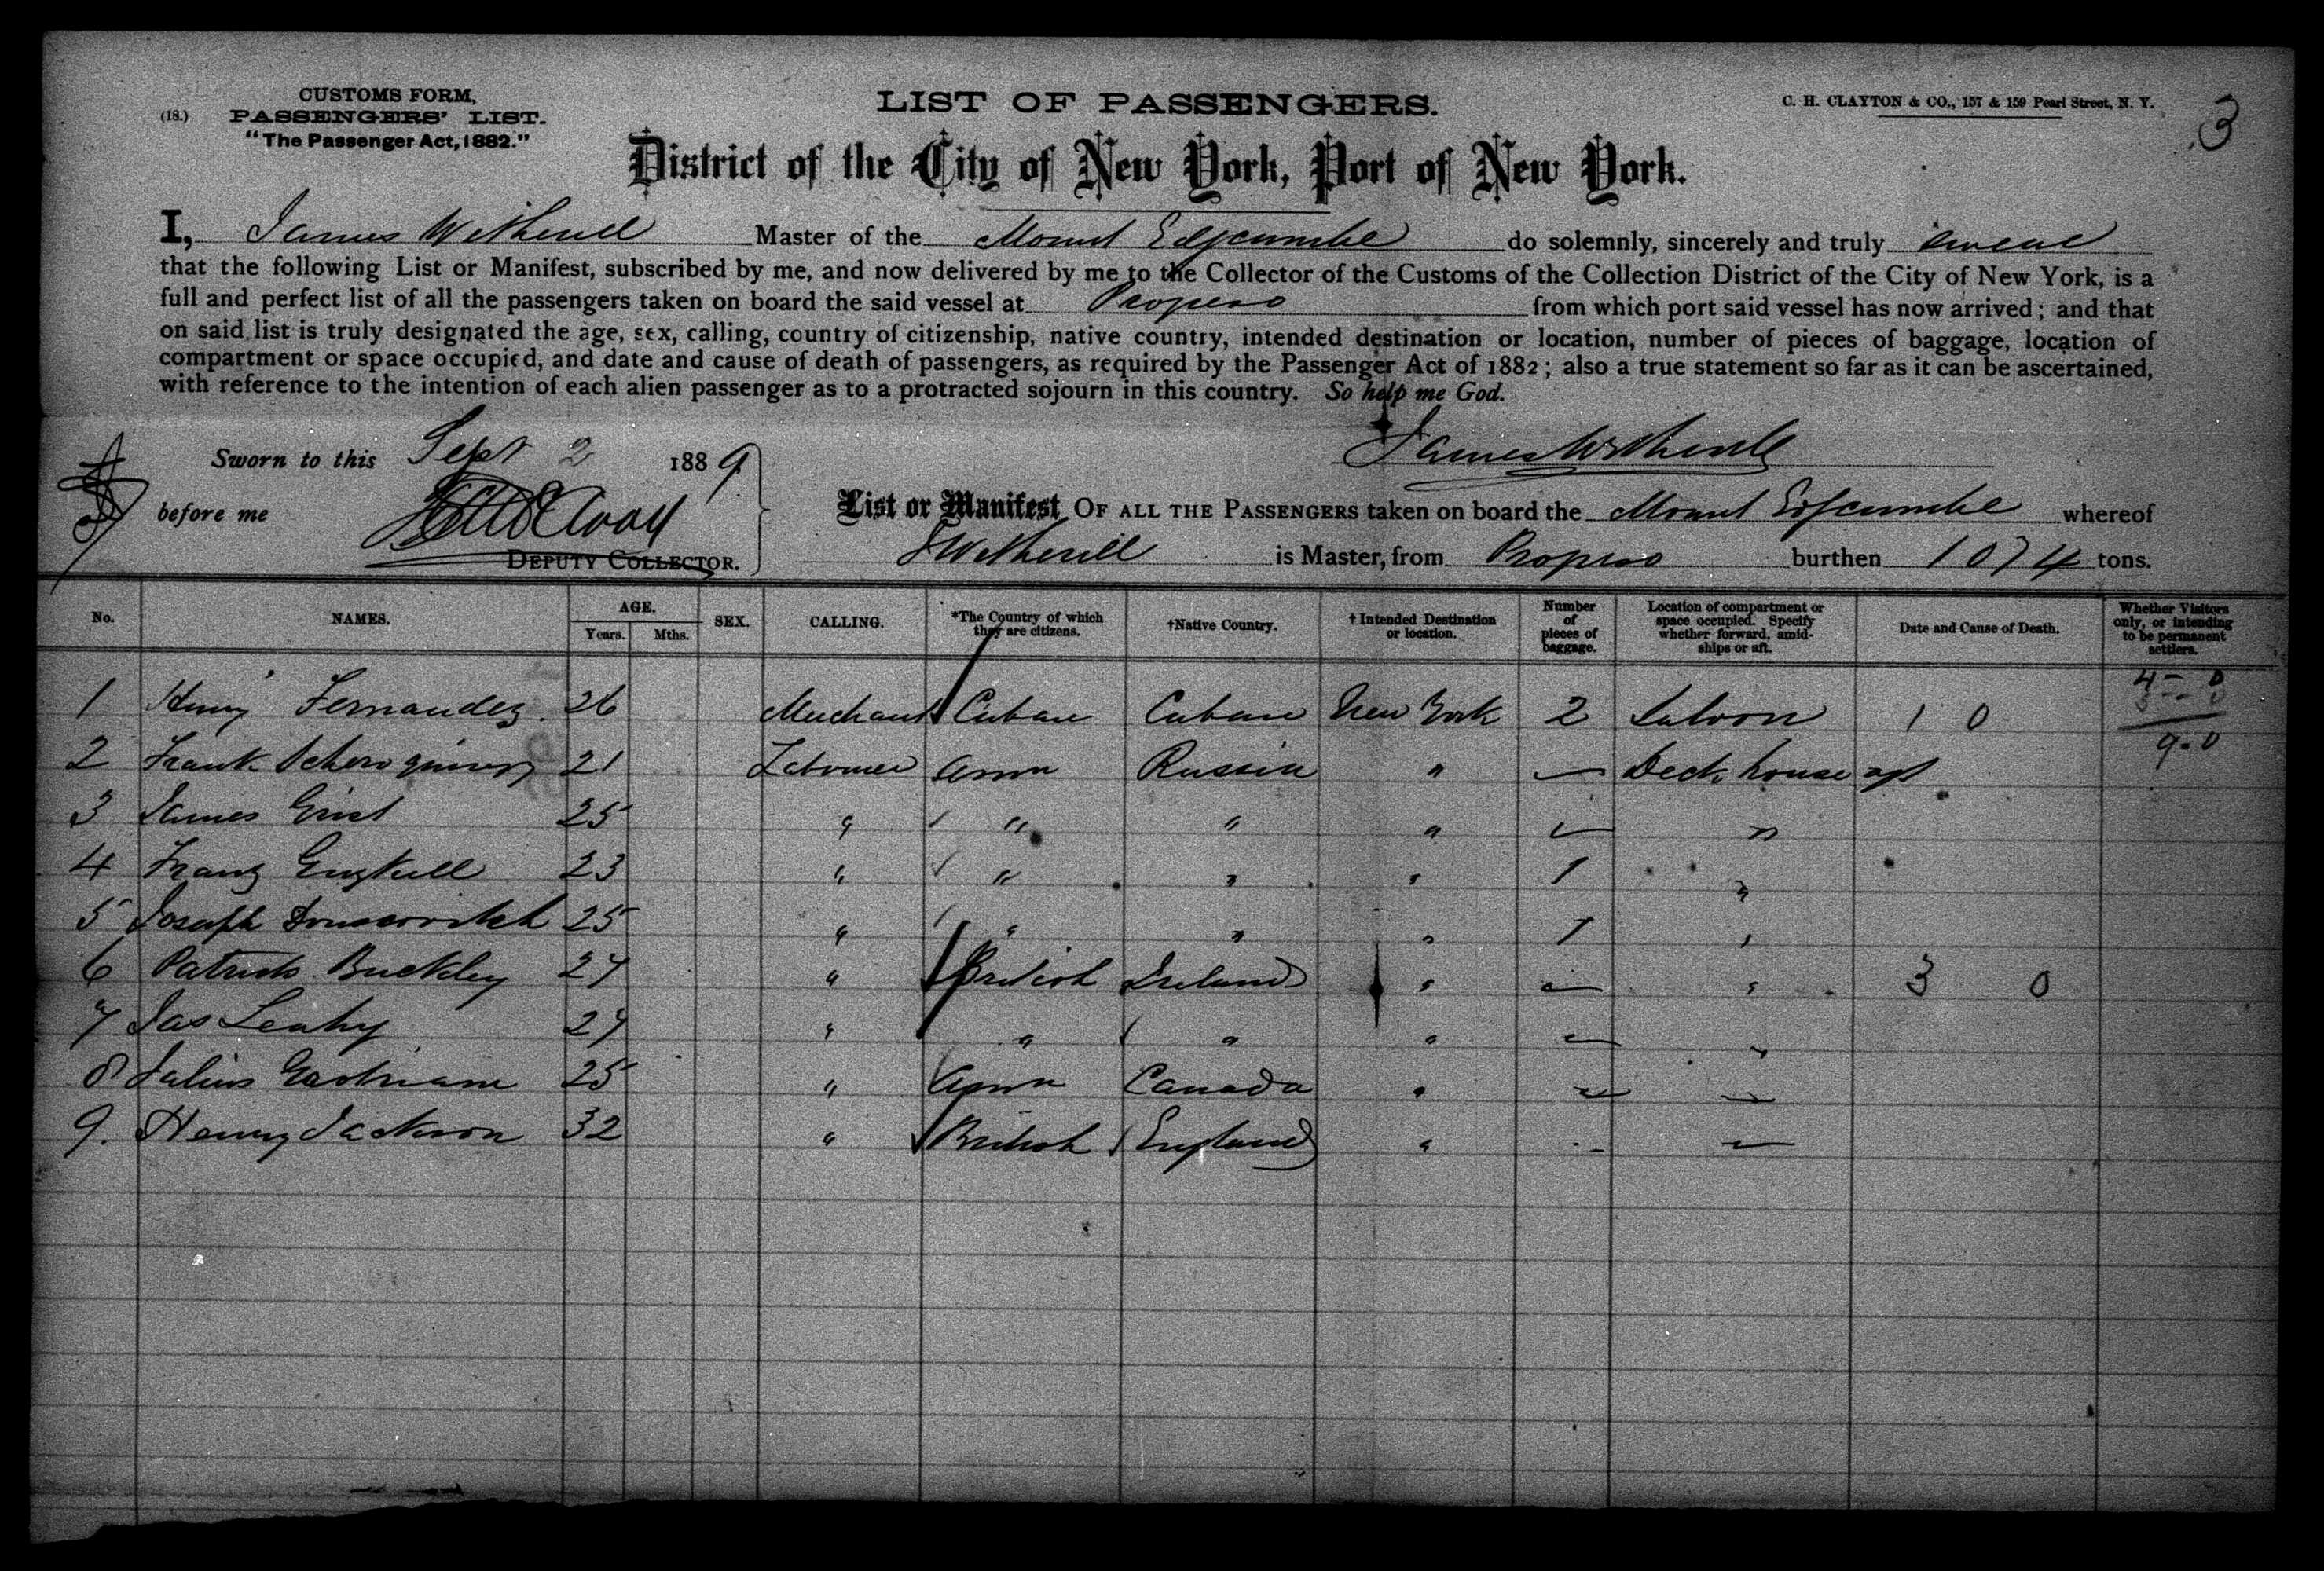 CUSTOMS FORM,
(18.) PASSENGERS' LIST.
"The Passenger Act, 1882."
LIST OF PASSENGERS.
C. H. CLAYTON & CO., 157 & 159 Pearl Street, N. Y.
3
District of the City of New York, Port of New York.
I, James Wetherill Master of the Mount Edgcumbe do solemnly, sincerely and truly swear
that the following List or Manifest, subscribed by me, and now delivered by me to the Collector of the Customs of the Collection District of the City of New York, is a
full and perfect list of all the passengers taken on board the said vessel at Progreso from which port said vessel has now arrived; and that
on said list is truly designated the age, sex, calling, country of citizenship, native country, intended destination or location, number of pieces of baggage, location of
compartment or space occupied, and date and cause of death of passengers, as required by the Passenger Act of 1882; also a true statement so far as it can be ascertained,
with reference to the intention of each alien passenger as to a protracted sojourn in this country. So help me God.
James Wetherill
Sworn to this Sept 2 1889
before me
DEPUTY COLLECTOR.
List or Manifest OF ALL THE PASSENGERS taken on board the Mount Edgcumbe whereof
J Wetherill is Master, from Progreso burthen 1074 tons.
No. NAMES. AGE. Years. Mths. SEX. CALLING. *The Country of which they are citizens. †Native Country. †Intended Destination or location. Number of pieces of baggage. Location of compartment or space occupied. Specify whether forward, amidships or aft. Date and Cause of Death. Whether Visitors only, or intending to be permanent settlers.
4 - 0
1 Henry Fernandez 26 Merchant Cuban Cuban New York 2 Saloon 1 0
9 - 0
2 Frank 21 Labourer Amn Russia " — Deck house aft
3 James 25 " " " " — "
4 Franz 23 " " " " 1 "
5 Joseph 25 " " " " 1 "
6 Patrick Buckley 27 " British Ireland " — " 3 0
7 Jas Leahy 27 " " " " — "
8 Julius Eastman 25 " Amn Canada " — "
9. Henry Jackson 32 " British England " - "